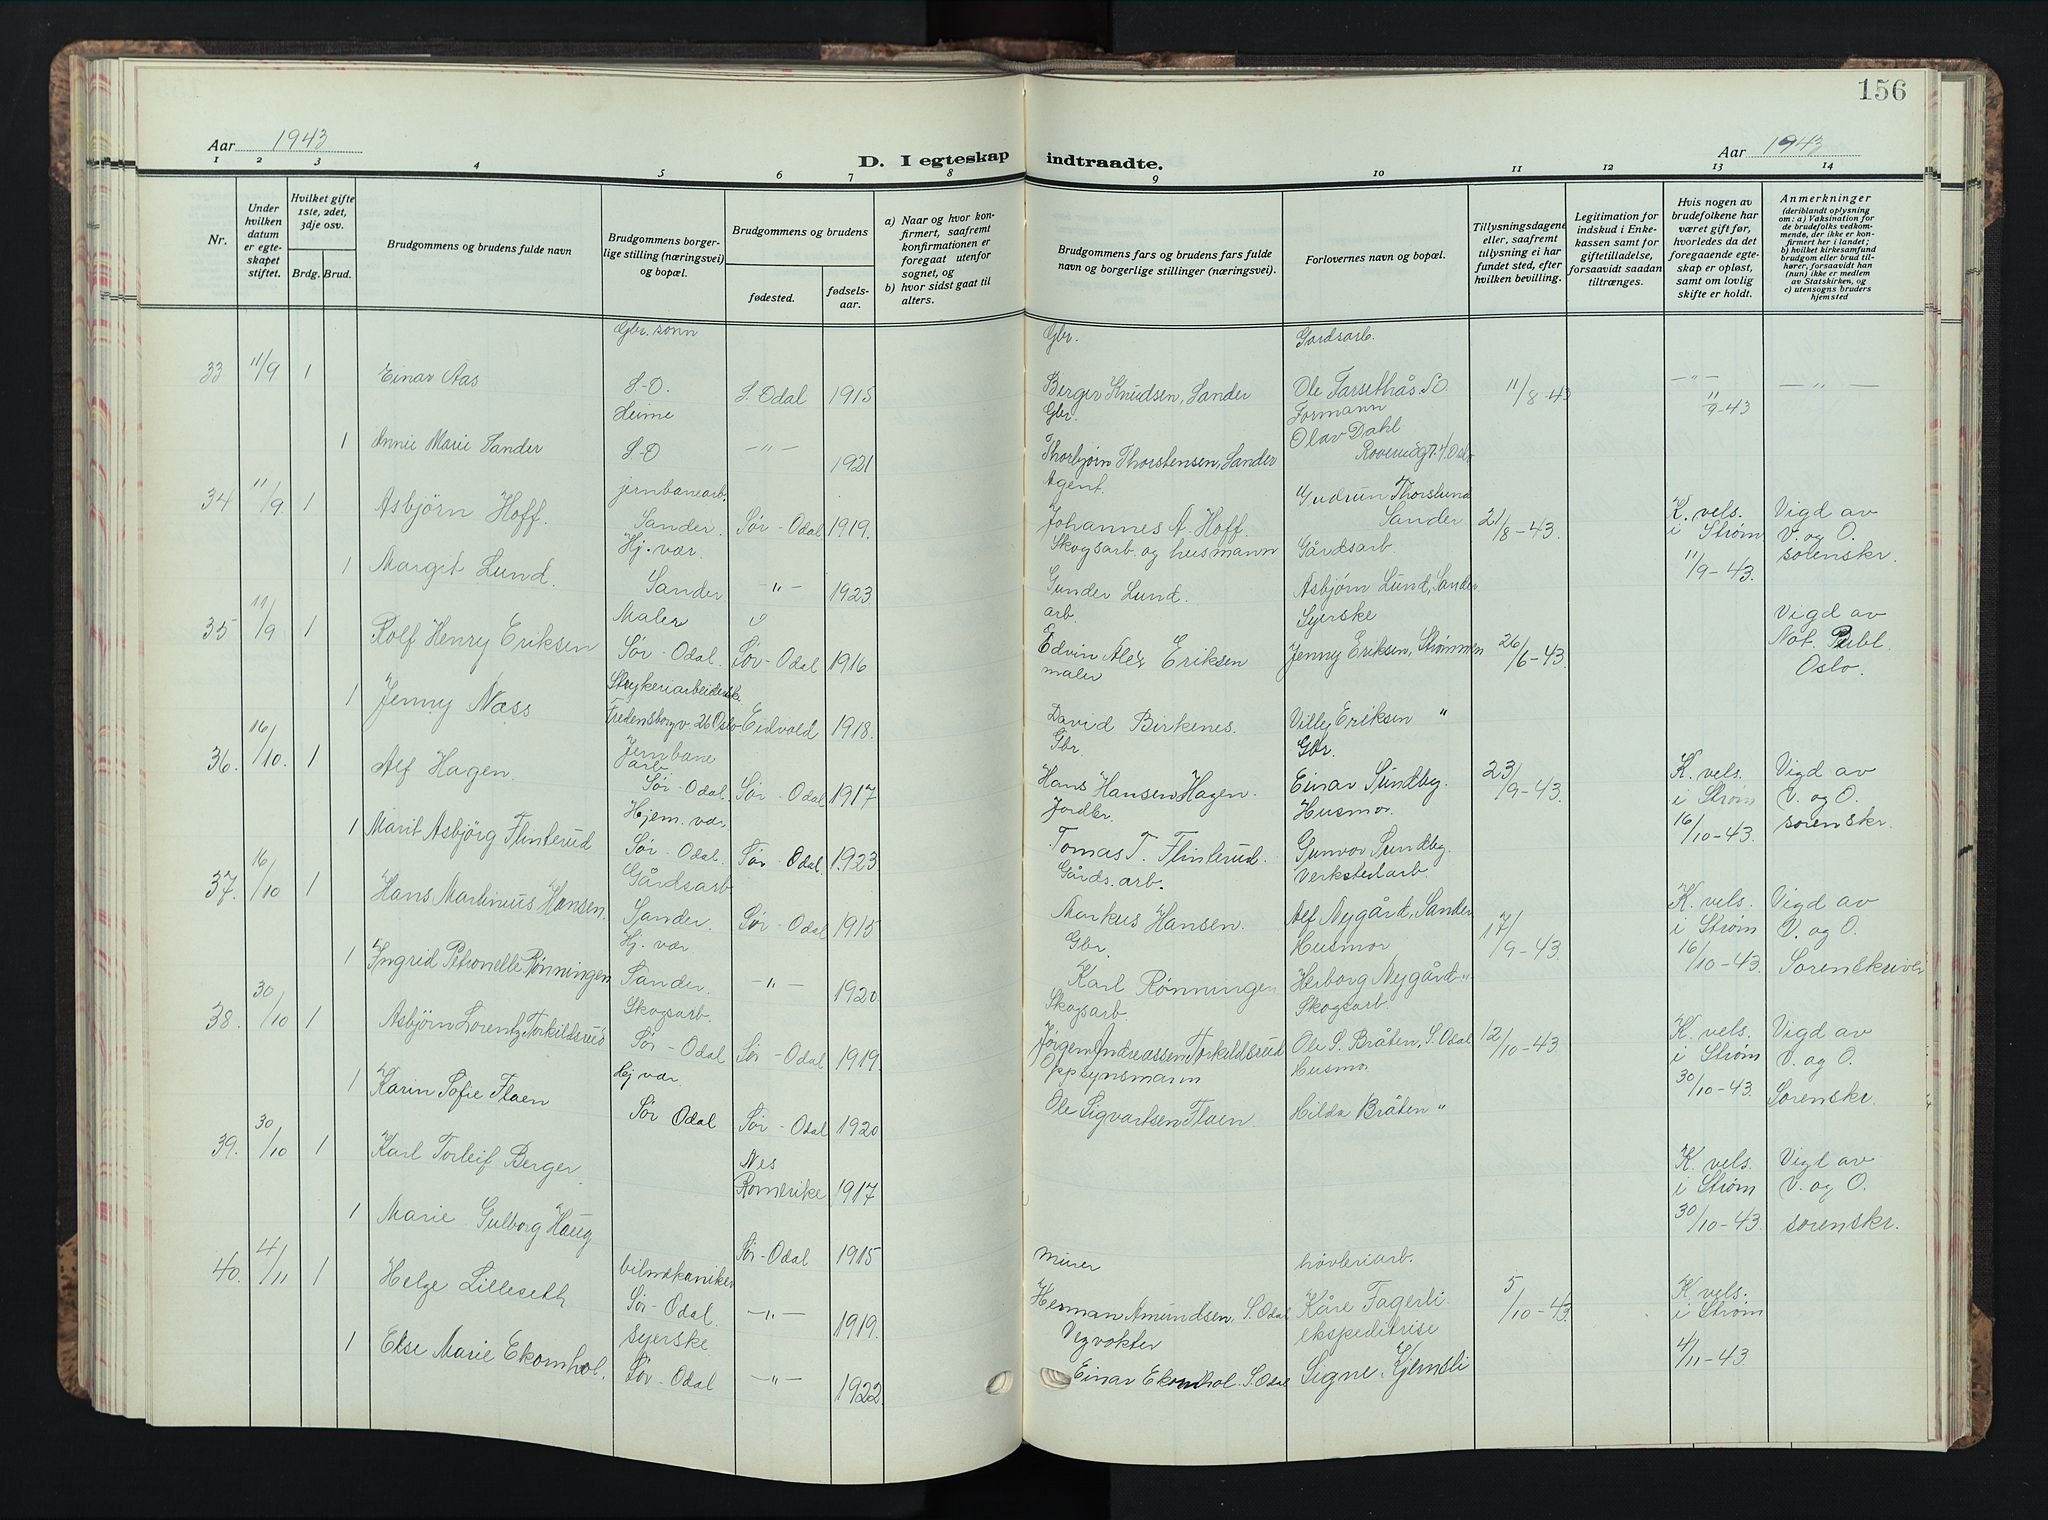 156
Aar 1943
D. I egteskap indtraadte.
Aar 1943
1 2 3 4 5 6 7 8 9 10 11 12 13 14
Nr.
Under hvilken datum er egteskapet stiftet.
Hvilket gifte 1ste, 2det, 3dje osv.
Brdg. Brud.
Brudgommens og brudens fulde navn
Brudgommens borgerlige stilling (næringsvei) og bopæl.
Brudgommens og brudens
fødested.
fødselsaar.
a) Naar og hvor konfirmert, saafremt konfirmationen er foregaat utenfor sognet, og
b) hvor sidst gaat til alters.
Brudgommens fars og brudens fars fulde navn og borgerlige stillinger (næringsvei).
Forlovernes navn og bopæl.
Tillysningsdagene eller, saafremt tillysning ei har fundet sted, efter hvilken bevilling.
Legitimation for indskud i Enkekassen samt for giftetilladelse, forsaavidt saadan tiltrænges.
Hvis nogen av brudefolkene har været gift før, hvorledes da det foregaaende egteskap er opløst, samt om lovlig skifte er holdt.
Anmerkninger
(deriblandt oplysning om: a) Vaksination for de brudefolks vedkommende, der ikke er konfirmert her i landet; b) hvilket kirkesamfund brudgom eller brud tilhører, forsaavidt han (hun) ikke er medlem av Statskirken, og c) utensogns bruders hjemsted
Gbr. sønn Gbr. Gardsarb.
33 11/9 1 Einar Aas S.-O. S. Odal 1915 Berger Knudsen, Sander Ole Farsethås S.O. 11/8-43 —"— —"—
Heime Gbr. Formann 11/9-43
1 Annie Marie Sander S.-O —"— 1921 Thorbjørn Thorstensen, Sander Olav Dahl
jernbanearb. Agent. Gudrun Thorslund
34 11/9. 1 Asbjørn Hoff. Sander. Sør-Odal 1919. Johannes A. Hoff. Sander 21/8-43. K. vels. i Strøm 11/9-43. Vigd av V. og O. sorenskr.
Hj. vær. Skogsarb. og husmann Gårdsarb.
1 Margit Lund. Sander. "- 1923. Gunder Lund. Asbjørn Lund, Sander
Maler arb. Syerske
35 11/9 1 Rolf Henry Eriksen Sør-Odal. Sør-Odal 1916 Edvin Alex Eriksen Jenny Eriksen, Strømmen 26/6-43. Vigd av Not. Publ. Oslo.
Strykeriarbeiderske maler
1 Jenny Næss Fredensborgv. 26 Oslo Eidvold 1918. David Birkenes. Villy Eriksen "
Jernbane arb Gbr. Gbr.
36. 16/10. 1 Alf Hagen. Sør-Odal. Sør-Odal 1917 Hans Hansen Hagen. Einar Sundby. 23/9-43. K. vels. i Strøm 16/10-43. Vigd av V. og O. sorenskr.
Hjem. vær. Jordbr. Husmor.
1 Marit Asbjørg Flinterud Sør-Odal. Sør-Odal 1923 Tomas T. Flinterud. Gunvor Sundby.
Gårdsarb Gårds.arb. Verkstedarb.
37. 16/10 1 Hans Martinius Hansen. Sander. Sør-Odal 1915 Markus Hansen. Alf Nygård, Sander 17/9-43. K. vels. i Strøm 16/10-43. Vigd av V. og O. Sorenskriver
Hj. vær. Gbr. Husmor
1 Ingrid Petronelle Rønningen Sander. —"— 1920. Karl Rønningen Herborg Nygård "
Skogsarb. Skogsarb. Skogsarb.
38. 30/10 1 Asbjørn Lorentz Torkildsrud Sør-Odal Sør-Odal 1919. Jørgen Andreassen Torkildsrud Ole S. Bråten, S. Odal 12/10-43. K. vels. i Strøm 30/10-43. Vigd av V. og O. Sorenskr.
Hj vær. Oppsynsmann Husmor
1 Karin Sofie Flaen Sør Odal Sør-Odal 1920 Ole Sigvartsen Flaen. Hilda Bråten "
39. 30/10 1 Karl Torleif Berger Nes Romerike 1917 K. vels. i Strøm 30/10-43. Vigd av V. og O. sorenskr.
1 Marie Gulborg Haug Sør-Odal 1915
bilmekaniker murer høvleriarb.
40. 4/11 1 Helge Lilleseth Sør-Odal. —"— 1919. Herman Amundsen, S. Odal Kåre Fagerli 5/10-43. K. vels. i Strøm 4/11-43.
syerske Vegvokter ekspeditrise
1 Else Marie Ekornhol. Sør-Odal —"— 1922 Einar Ekornhol. S. Odal Signe Kjernsli